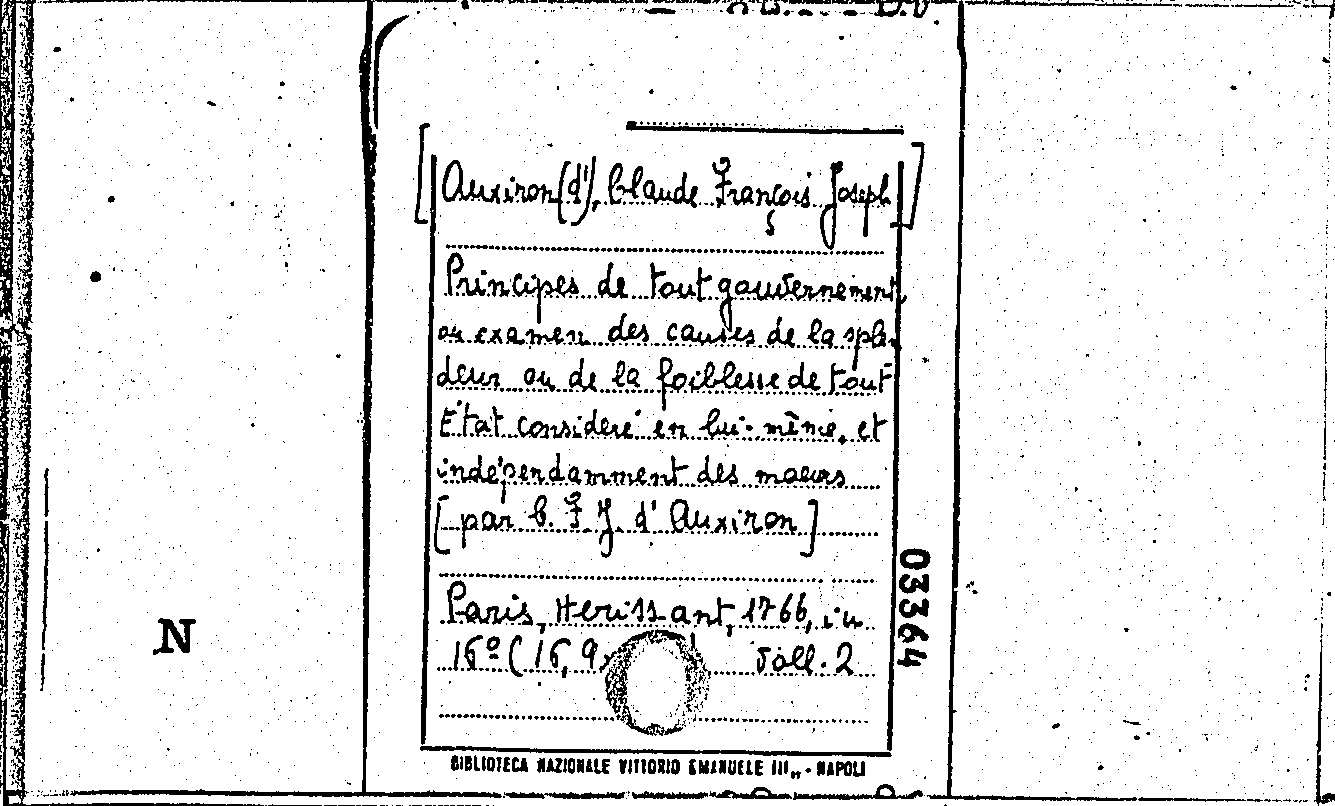 [Auxiron (d'), Claude François Joseph]
Principes de tout gouvernement,
ou examen des causes de la splen
deur ou de la foiblesse de tout
État consideré en lui-même, et
indépendamment des moeurs
[par C. F. J. d'Auxiron]
Paris, Herissant, 1766, in
16º (16,9 voll. 2
03364
N
BIBLIOTECA NAZIONALE VITTORIO EMANUELE III„ - NAPOLI